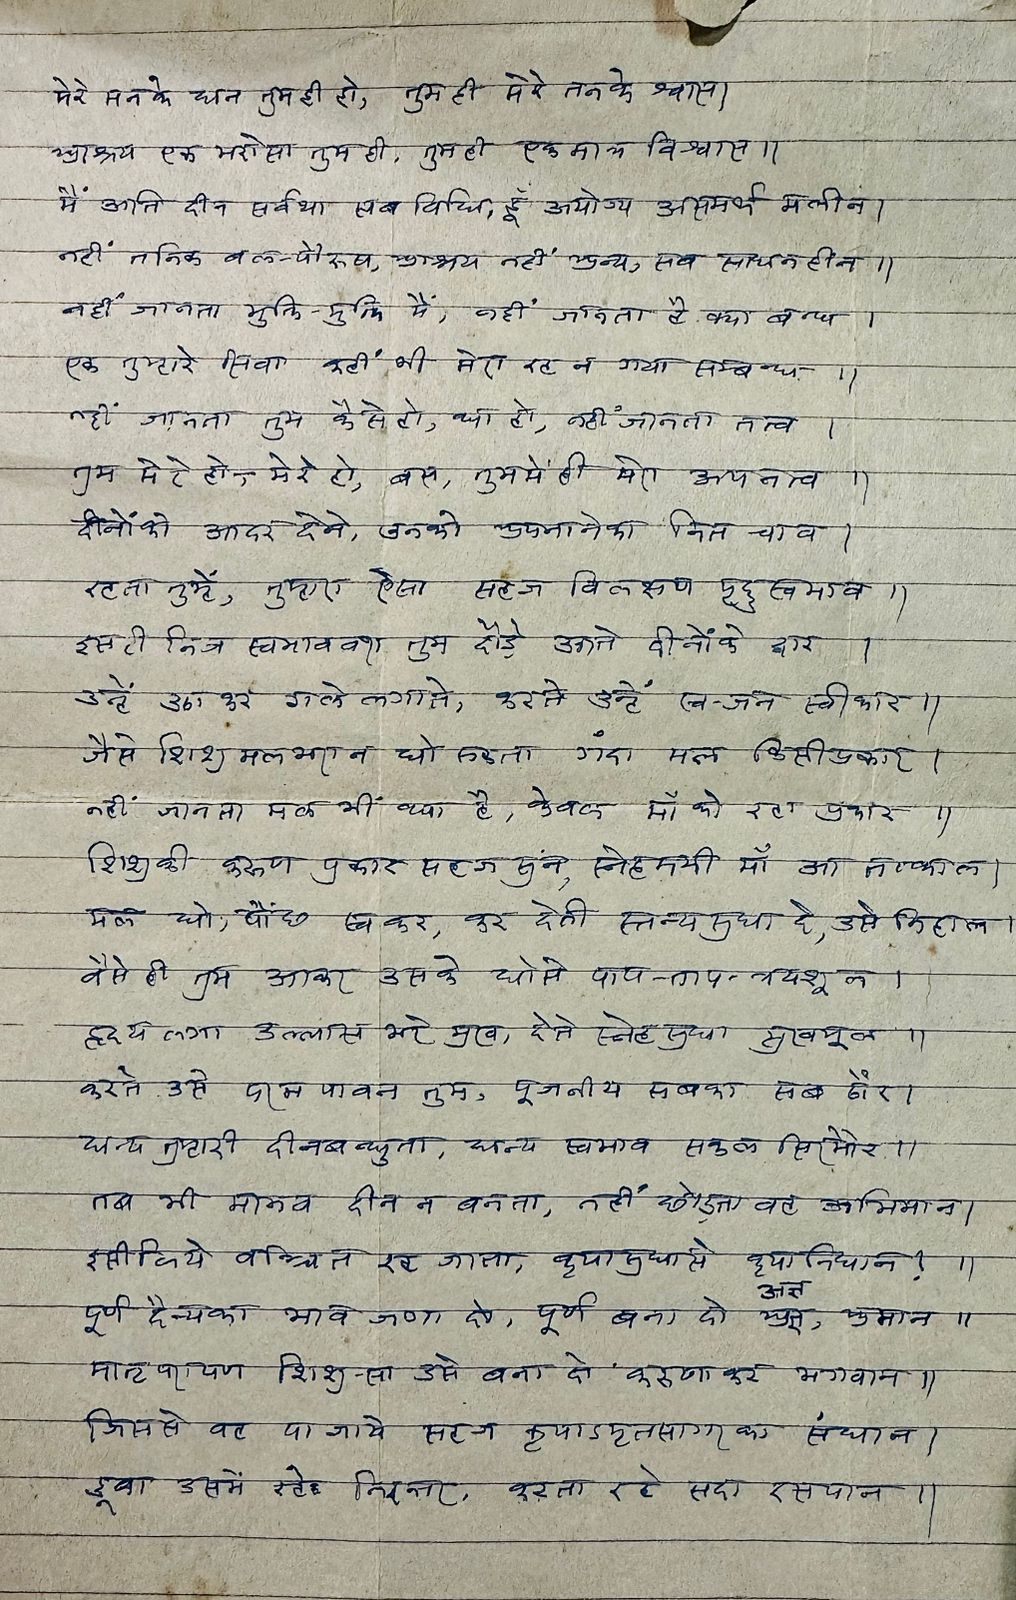 मेरे मनके धन तुमही हो, तुमही मेरे तनके श्वास।
आश्रय एक भरोसा तुमही, तुमही एकमात्र विश्वास॥
मैं अति दीन सर्वथा सब विधि, हूँ अयोग्य असमर्थ मलीन।
नहीं तनिक बल-पौरुष, आश्रय नहीं अन्य, सब साधनहीन॥
नहीं जानता भुक्ति-मुक्ति मैं, नहीं जानता है क्या बन्ध।
एक तुम्हारे सिवा कहीं भी मेरा रह न गया सम्बन्ध॥
नहीं जानता तुम कैसे हो, क्या हो, नहीं जानता तत्व।
तुम मेरे हो, मेरे हो, बस, तुममें ही मेरा अपनत्व॥
दीनोंको आदर देने, उनको अपनानेका नित चाव।
रहता तुम्हें, तुम्हारा ऐसा सहज विलक्षण मृदु स्वभाव॥
इसही निज स्वभाववश तुम दौड़े आते दीनोंके द्वार।
उन्हें उठाकर गले लगाते, करते उन्हें स्व-जन स्वीकार॥
जैसे शिशु मलभरा न धो सकता गंदा मल किसी प्रकार।
नहीं जानता मल भी क्या है, केवल माँ को रहा पुकार॥
शिशुकी करुण पुकार सहज सुन, स्नेहमयी माँ आ तत्काल।
मल धो, पोंछ स्वकर, कर देती स्तन्यसुधा दे, उसे निहाल।
वैसे ही तुम आकर उसके धोते पाप-ताप-त्रयशूल।
हृदय लगा उल्लास भरे मुख, देते स्नेहसुधा सुखमूल॥
करते उसे परम पावन तुम, पूजनीय सबका सब ठौर।
धन्य तुम्हारी दीनबन्धुता, धन्य स्वभाव सकल सिरमौर॥
तब भी मानव दीन न बनता, नहीं छोड़ता वह अभिमान।
इसीलिये वञ्चित रह जाता, कृपासुधासे कृपानिधान! ॥
पूर्ण दैन्यका भाव जगा दो, पूर्ण बना दो अज्ञ, अमान॥
मातृपरायण शिशु-सा उसे बना दो करुणाकर भगवान॥
जिससे वह पा जाये सहज कृपाऽमृतसागरका संधान।
डूबा उसमें रहे निरन्तर, करता रहे सदा रसपान॥